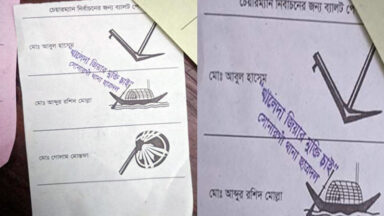 চেয়ারম্যান নির্বাচনের জন্য ব্যালট পে
মোঃ আবুল হাসেম
খালেদা জিয়ার মুক্তি চাই
সোনারগাঁ থানা ছাত্রদল
মোঃ আব্দুর রশিদ মোল্লা
মোঃ গোলাম মোস্তফা
র্বাচনের জন্য ব্যালট
মোঃ আবুল হাসেম
খালেদা জিয়ার মুক্তি চাই"
সোনারগাঁ থানা ছাত্রদল
মোঃ আব্দুর রশিদ মোল্লা